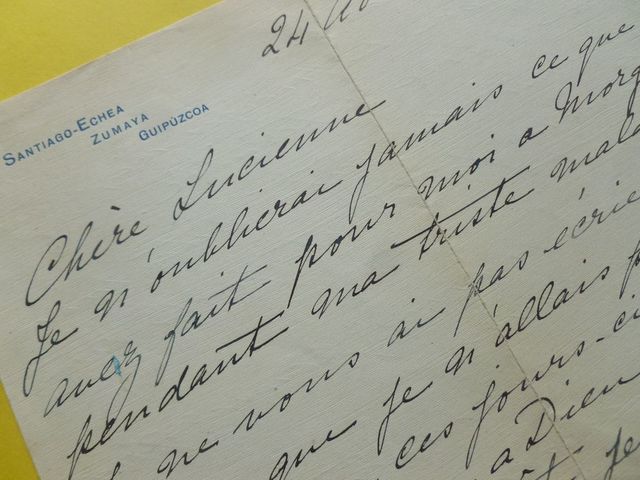 24
SANTIAGO-ECHEA
ZUMAYA
GUIPÚZCOA
Chère Lucienne
Je n'oublierai jamais ce que
avez fait pour moi a Morg
pendant ma triste mala
ne vous ai pas écrie
que je n'allais p
ces jours-ci
a Dieu
je